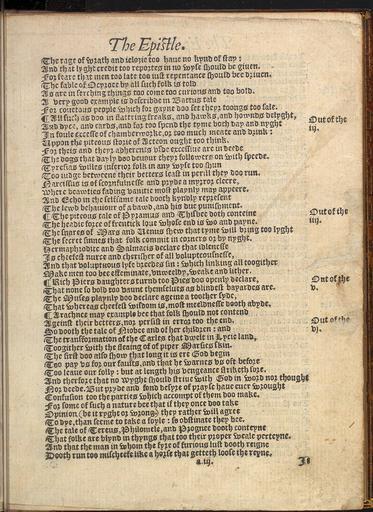 The Epistle.
The rage of wrath and ielozie too haue no kynd of stay:
And that lyght credit too reportes in no wyse should be giuen,
For feare that men too late too iust repentance should bee driuen.
The fable of Ocyroee by all such folk is told
As are in serching things too come too curious and too bold.
A very good example is describde in Battus tale
For couetous people which for gayne doo set theyr toongs too sale.
¶ All such as doo in flattring freaks, and hawks, and hownds delyght,
Out of the
And dyce, and cards, and for too spend the tyme both day and nyght
iij.
In foule excesse of chamberworke, or too much meate and drink:
Uppon the piteous storie of Acteon ought too think.
For theis and theyr adherents vsde excessiue are in deede
The dogs that dayly doo deuour theyr followers on with speede.
Tyresias willes inferior folk in any wyse too shun
Too iudge betweene their betters least in perill they doo run.
Narcissus is of scornfulnesse and pryde a myrror cleere,
Where beawties fading vanitie most playnly may appeere.
And Echo in the selfsame tale dooth kyndly represent
The lewd behauiour of a bawd, and his due punishment.
¶ The piteous tale of Pyramus and Thisbee doth conteine
Out of the
The headie force of frentick loue whose end is wo and payne.
iiij.
The snares of Mars and Venus shew that tyme will bring too lyght
The secret sinnes that folk commit in corners or by nyght.
Hermaphrodite and Salmacis declare that idlenesse
Is cheefest nurce and cherisher of all volupteousnesse,
And that voluptuous lyfe breedes sin: which linking all toogither
Make men too bee effeminate, unweeldy, weake and lither.
¶ Rich Piers daughters turnd too Pies doo openly declare,
Out of the
That none so bold too vaunt themselues as blindest bayardes are.
v.
The Muses playnly doo declare ageine a toother syde,
That whereas cheefest wisdom is, most meeldnesse dooth abyde.
¶ Arachnee may example bee that folk should not contend
Ageinst their betters, nor persist in error too the end.
Out of the
So dooth the tale of Niobee and of her children: and
vj.
The transformation of the Carles that dwelt in Lycie land,
Toogither with the fleaing of of piper Marsies skin.
The first doo also show that long it is ere God begin
Too pay vs for our faults, and that he warnes vs oft before
Too leaue our folly: but at length his vengeance striketh sore.
And therfore that no wyght should striue with God in word nor thought
Nor deede. But pryde and fond desyre of prayse haue euer wrought
Confusion too the parties which accompt of them doo make.
For some of such a nature bee that if they once doo take
Opinion (be it ryght or wrong) they rather will agree
To dye, than seeme to take a foyle: so obstinate they bee.
The tale of Tereus, Philomele, and Prognee dooth conteyne
That folke are blynd in thyngs that too their proper weale perteyne.
And that the man in whom the fyre of furious lust dooth reigne
Dooth run too mischeefe like a horse that getteth loose the reyne.
a.iij.